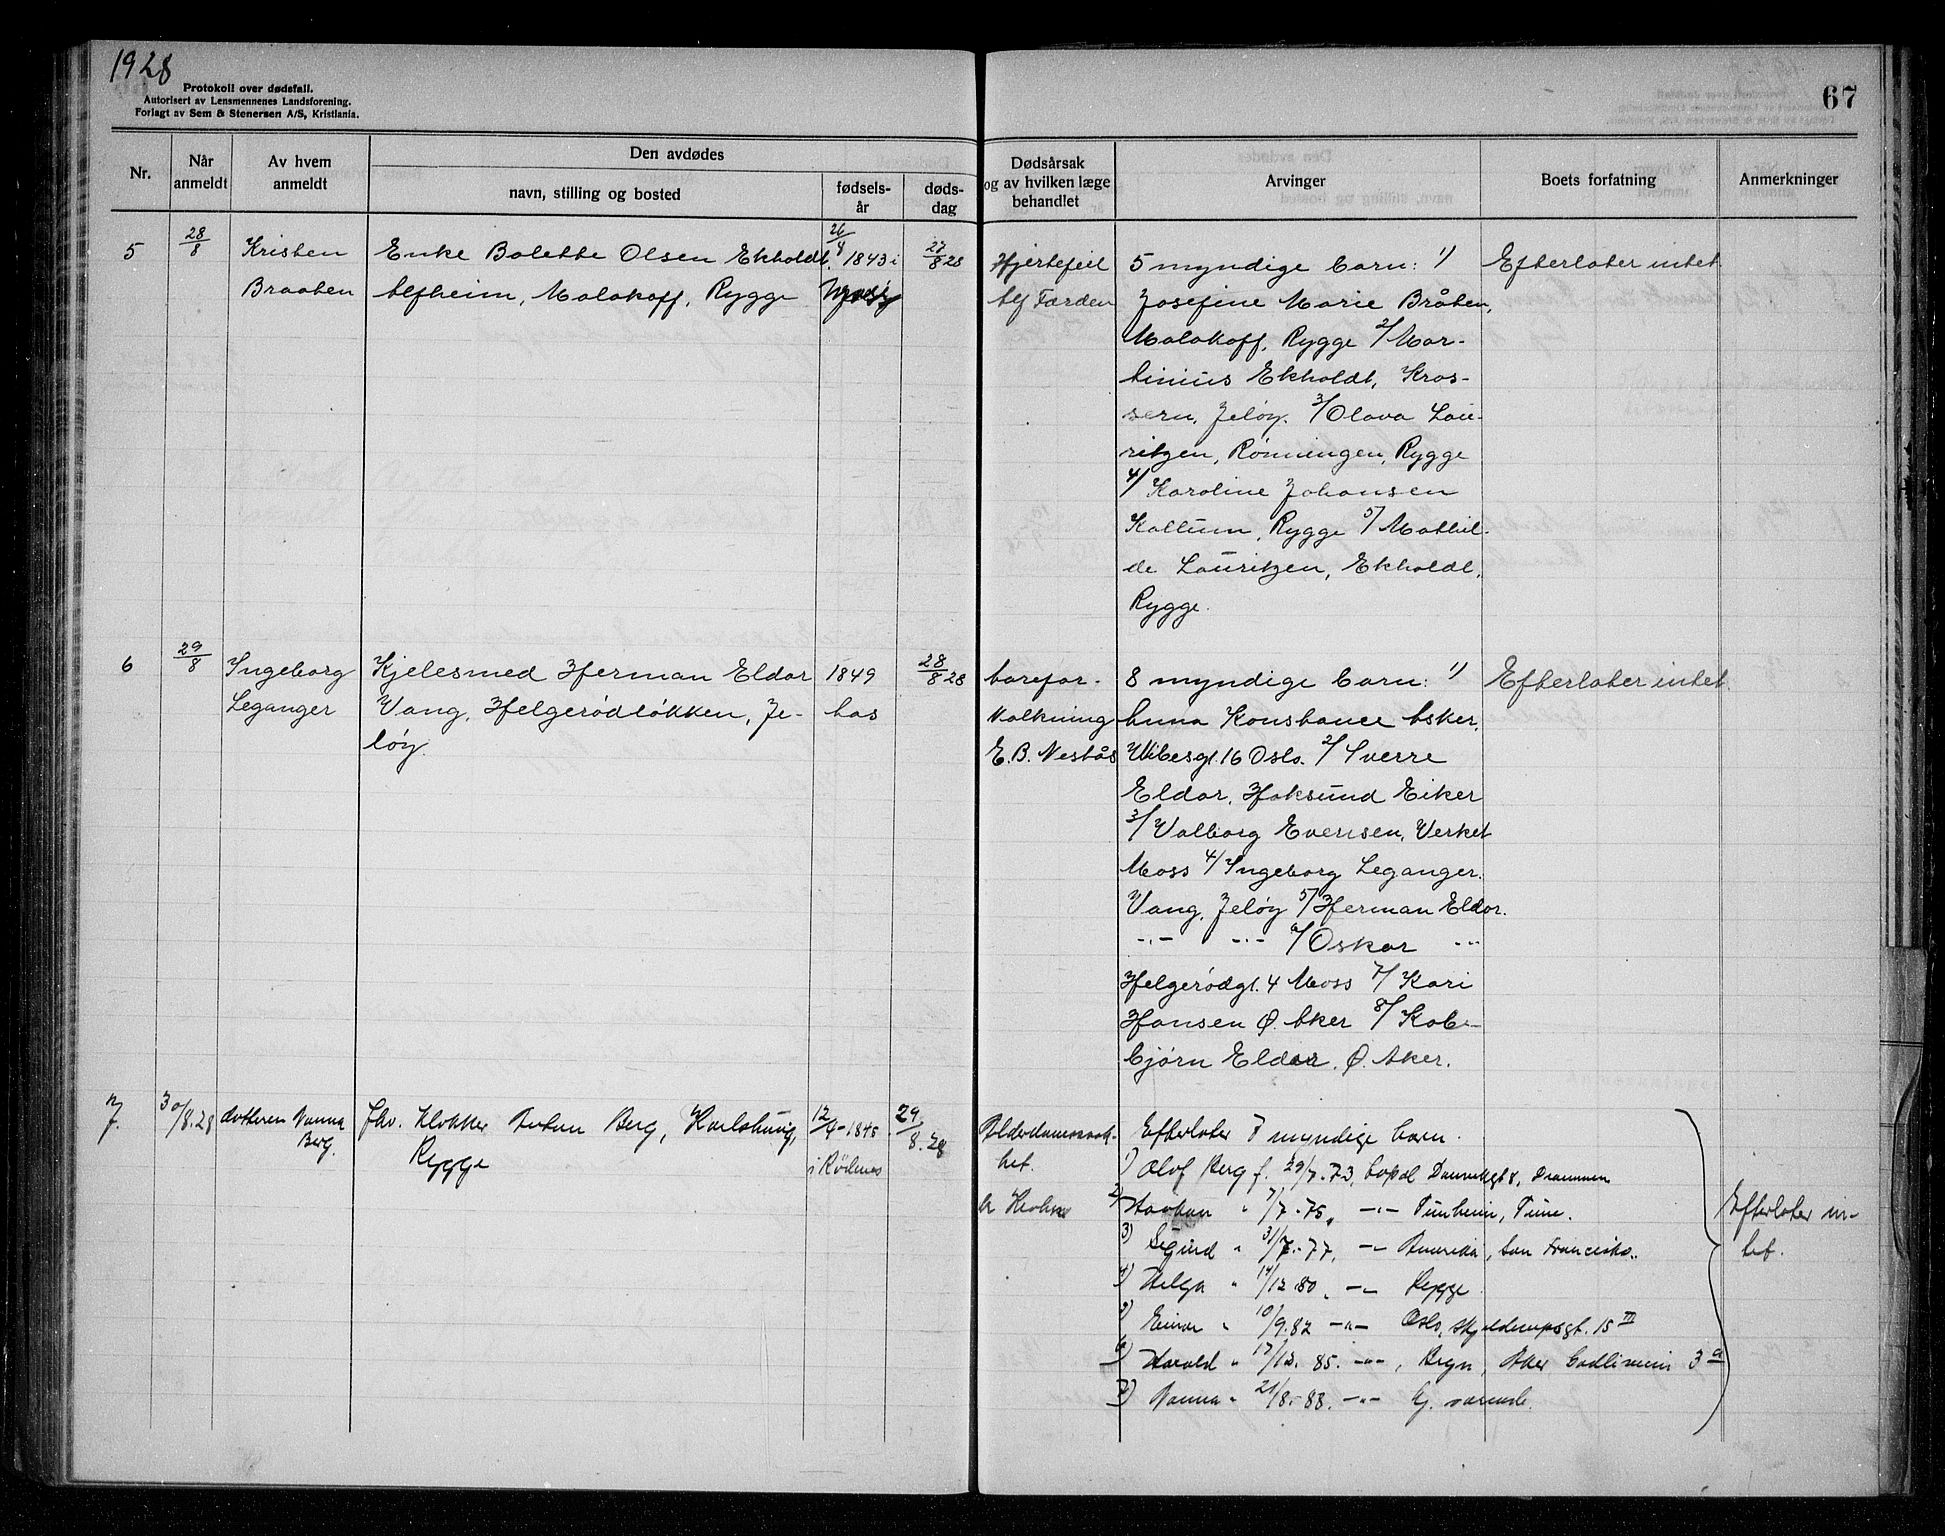 1928
Protokoll over dødsfall.
Autorisert av Lensmennenes Landsforening.
Forlagt av Sem & Stenersen A/S, Kristiania.
67
Nr.
Når anmeldt
Av hvem anmeldt
Den avdødes
navn, stilling og bosted
fødsels-år
døds-dag
Dødsårsak og av hvilken læge behandlet
Arvinger
Boets forfatning
Anmerkninger
5
28/8
Kristen
Braaten
Enke Bolette Olsen Ekholdt
Alfheim, Malakoff, Rygge
26/4 1843 i
27/8 28
Hjertefeil
Alf Færden
5 myndige barn: 1/
Josefine Marie Bråten,
Malakoff, Rygge 2/ Mar-
tinius Ekholdt, Kros-
sern, Jeløy. 3/ Olava Lau-
ritzen, Rønningen, Rygge
4/ Karoline Johansen
Kallum, Rygge 5/ Mathil-
de Lauritzen, Ekholdt,
Rygge.
Efterlater intet
6
29/8
Ingeborg
Leganger
Kjelesmed Herman Eldor
Vang, Helgerødløkken, Je-
løy.
1849
28/8 28
Aarefor-
kalkning
E. B. Nestås
8 myndige barn: 1/
Anna Konstance Asker,
Wibesgt. 16 Oslo. 2/ Sverre
Eldor, Hoksund Eiker
3/ Valborg Evensen, Verket
Moss 4/ Ingeborg Leganger.
Vang, Jeløy 5/ Herman Eldor.
-"- -"- 6/ Oskar -"-
Helgerødgt. 4 Moss 7/ Kari
Hansen Ø. Aker 8/ Kol-
bjørn Eldor, Ø. Aker.
Efterlater intet
7.
30/8.28
datteren Nanna
Berg.
fhv. Klokker Anton Berg, Karlshus,
Rygge
12/4-1845
i Rødenes
29/8.28
Alderdomssvak-
het.
Efterlater 7 myndige barn.
1) Olof Berg f. 29/7.73, bopæl Drammen
2) " 7/7.75, -"- Tune.
3) Sigurd " 31/7.77, -"- Amerika, San Francisko.
4) Helga " 14/12 80, -"- Rygge
5) Einar " 10/9.82 -"- Oslo, 15 III
6) Harald " 17/12. 85. -"-, Aker 3 a
7) Nanna " 21/8.-88. -"-
Efterlater in-
tet.